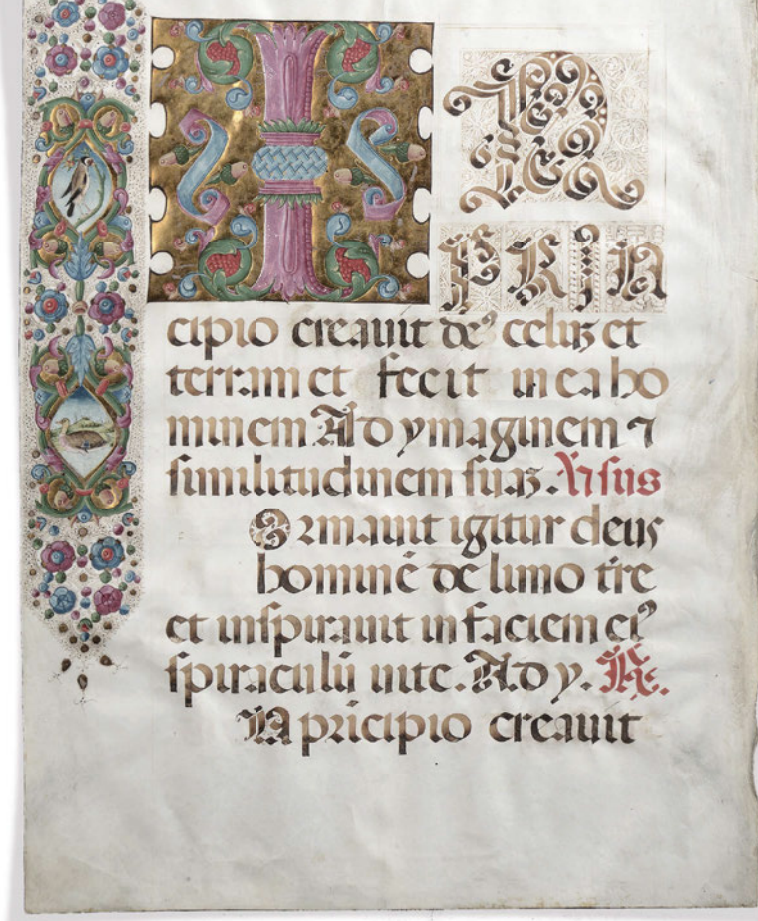 IN
PRIN
cipio creauit de⁹ celuʒ et
terram et fecit in ea ho
minem Ad ymaginem ⁊
similitudinem suaʒ. Vʳsus
Formauit igitur deus
hominē de limo tr̄e
et inspirauit in faciem ei⁹
spiraculū uite. Ad y. R̷.
IN prīcipio creauit